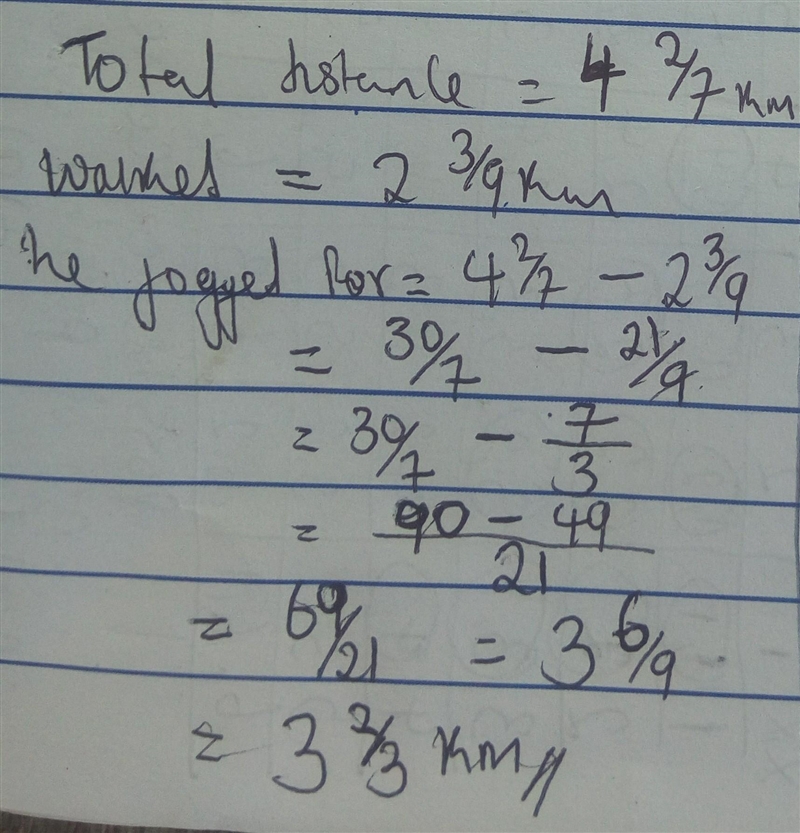 Total distance = 4 2/7 km
walked = 2 3/9 km
he jogged for = 4 2/7 - 2 3/9
= 30/7 - 21/9
= 30/7 - 7/3
= 90 - 49 / 21
= 69/21 = 3 6/9
= 3 2/3 km //